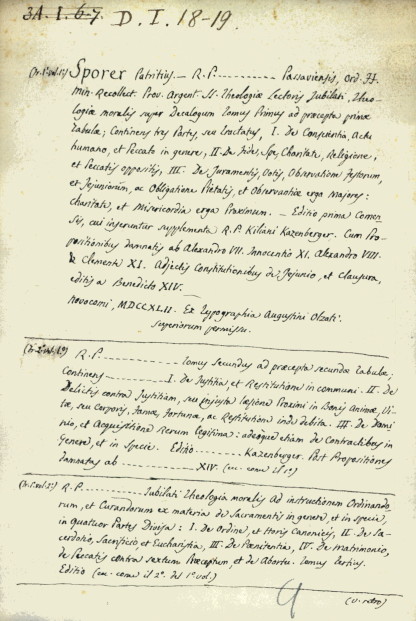 3A. I. 6-7. D. I. 18-19.
Sporer Patritius. — R. P. ---------- Passaviensis, Ord. FF.
Min. Recollect. Prov. Argent. SS. Theologiæ Lectoris Jubilati, Theo-
logiæ moralis super Decalogum tomus Primus ad præcepta primæ
tabulæ; Continens tres Partes seu tractatus, I. De Conscientia, Actu
humano, et Peccato in genere, II. De Fide, Spe, Charitate, Religione,
et Peccatis oppositis, III. De Juramentis, Votis, Observatione festorum,
et Jejuniorum, ac Obligatione Pietatis, et Observantiæ erga Majores:
charitate, et Misericordia erga Proximum. — Editio prima Comen
sis, cui inseruntur supplementa R. P. Kiliani Kazenberger. Cum Pro-
positionibus damnatis ab Alexandro VII. Innocentio XI. Alexandro VIII.
& Clemente XI. Adjectis Constitutionibus de Jejunio, et Clausura,
editis a Benedicto XIV.
Novocomi, MDCCXLII. Ex Typographia Augustini Olzati.
Superiorum permissu.
R. P. ---------- tomus Secundus ad præcepta secundæ tabulæ;
Continens ---------- I. De Justitia, et Restitutione in communi. II. De
Delictis contra Justitiam, seu injusta læsione Proximi in Bonis Animæ, Vi-
tæ, seu Corporis, Famæ, Fortunæ, ac Restitutione inde debita. III. De Domi
nio, et Acquisitione Rerum legitima: adeoque etiam de Contractibus in
Genere, et in specie. Editio ---------- Kazenberger. Post Propositiones
damnatas ab ---------- XIV. (ec. come il 1º)
R. P. ---------- Jubilati Theologia moralis ad instructionem Ordinando-
rum, et Curandorum ex materia de Sacramentis in genere, et in specie,
in quatuor Partes Divisa: I. de Ordine, et Horis Canonicis, II. de Sa-
cerdotio, Sacrificio, et Eucharistia, III. de Pœnitentia, IV. de Matrimonio,
de Peccatis contra sextum Præceptum, et de Abortu. tomus tertius.
Editio (ec. come il 2º. del 1º vol.)
(v. retro)